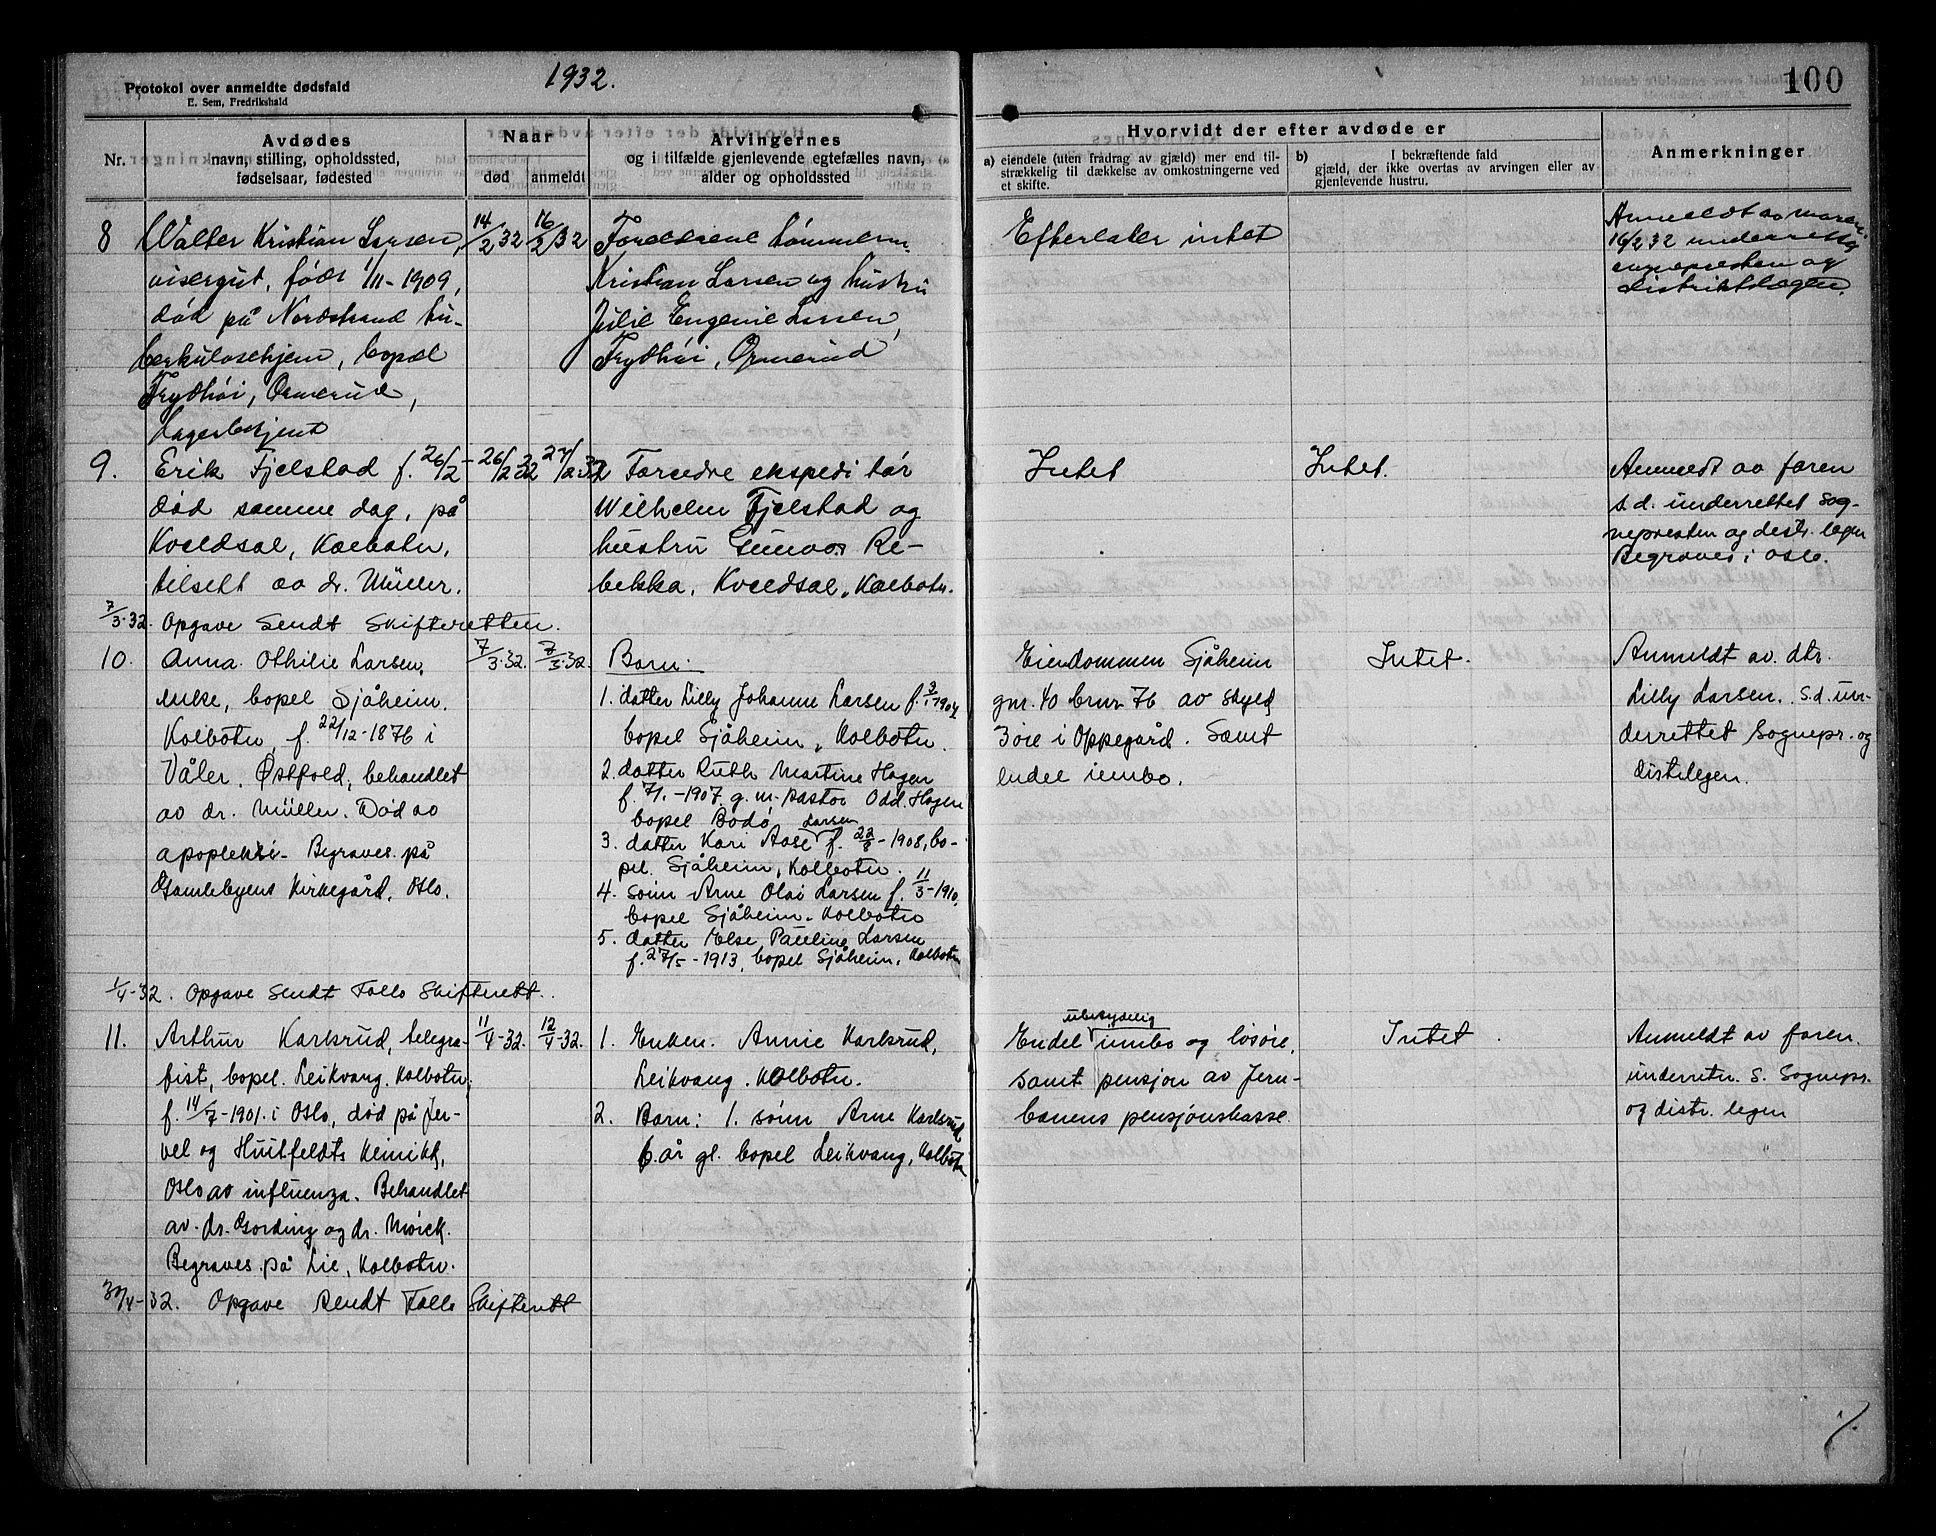 Protokol over anmeldte dødsfald
E. Sem, Fredrikshald
1932.
100
Nr.
Avdødes
navn, stilling, opholdssted,
fødselsaar, fødested
Naar
død
anmeldt
Arvingernes
og i tilfælde gjenlevende egtefælles navn,
alder og opholdssted
Hvorvidt der efter avdøde er
a) eiendele (uten fradrag av gjæld) mer end til-
strækkelig til dækkelse av omkostningerne ved
et skifte.
b) I bekræftende fald
gjæld, der ikke overtas av arvingen eller av
gjenlevende hustru.
Anmerkninger
8
Walter Kristian Larsen,
visergut, født 1/11-1909,
død på Nordstrand tu-
berkulosehjem, bopæl
Frydhøi, Ormerud,
Lagerbetjent
14/2 32
16/2 32
Foreldrene tømmerm.
Kristian Larsen og hustru
Julie Eugenie Larsen,
Frydhøi, Ormerud
Efterlater intet
Anmeldt av moren
16/2 32 underrettet
sognepresten og
distriktslægen.
9.
Erik Fjelstad f. 26/2-
død samme dag, på
Kveldsol, Kolbotn,
tilsett av dr. Müller.
26/2 32
27/2 32
Foreldre ekspeditør
Wilhelm Fjelstad og
hustru Gunvor Re-
bekka, Kveldsol, Kolbotn.
Intet
Intet.
Anmeldt av faren
s.d. underrettet sog-
nepresten og distr. legen
Begraves i Oslo.
7/3-32. Opgave sendt Skifteretten.
10.
Anna Othilie Larsen,
enke, bopel Sjåheim.
Kolbotn, f. 22/12-1876 i
Våler, Østfold, behandlet
av dr. Müller. Død av
apoplekxi. Begraves på
Gamlebyens Kirkegård, Oslo.
7/3-32.
7/3-32.
Barn:
1. datter Lilly Johanne Larsen f. 3/1-1904
bopel Sjåheim, Kolbotn.
2. datter Ruth Martine Hagen
f. 7/1-1907. g. m. pastor Odd. Hagen
bopel Bodø
3. datter Kari Aase Larsen f. 22/8-1908, bo-
pel. Sjåheim, Kolbotn.
4. sønn Arne Olai Larsen f. 11/3-1910,
bopel Sjåheim, Kolbotn
5. datter Else Pauline Larsen
f. 27/5-1913, bopel Sjåheim, Kolbotn
Eiendommen Sjåheim
gnr. 40 brnr 76 av skyld
3 øre i Oppegård. Samt
endel innbo.
Intet.
Anmeldt av dtr.
Lilly Larsen. S.d. un-
derrettet Sognepr. og
distr.legen.
1/4-32. Opgave sendt Follo Skifterett.
11.
Arthur Karlsrud, telegra-
fist, bopel. Leikvang. Kolbotn,
f. 14/7-1901. i Oslo, død på Jer-
vel og Huitfeldts klinikk,
Oslo av influenza. Behandlet
av dr. Gording og dr. Mørck.
Begraves på Lie, Kolbotn.
11/4-32.
12/4-32.
1. Enken. Annie Karlsrud,
Leikvang. Kolbotn.
2. Barn: 1. sønn Arne Karlsrud
6. år gl. bopel Leikvang, Kolbotn
Endel ubetydelig innbo og løsøre,
samt pensjon av Jern-
banens pensjonskasse.
Intet.
Anmeldt av faren.
underretn. S. Sognepr.
og distr. legen
30/4-32. Opgave sendt Follo Skifterett